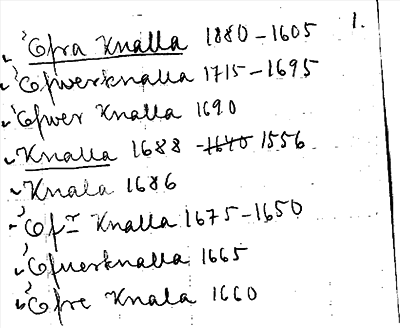 1.
Öfra Knalla 1880-1605
Öfwerknalla 1715-1695
Öfwer Knalla 1690
Knalla 1688 -1640 1556
Knala 1686
Öfr Knalla 1675-1650
Öfuerknalla 1665
Öfre Knala 1660